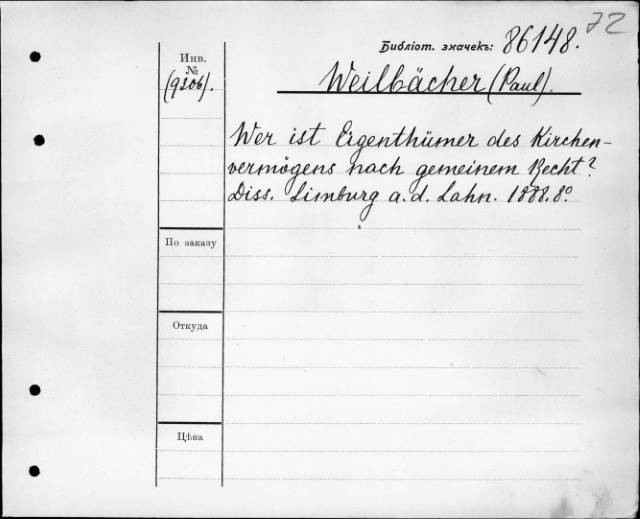 72
Библіот. значекъ: 86148.
Инв.
№
(9206).
Weilbächer (Paul).
Wer ist Eigenthümer des Kirchen-
vermögens nach gemeinem Recht?
Diss. Limburg a. d. Lahn. 1888. 8º
По заказу
Откуда
Цѣна